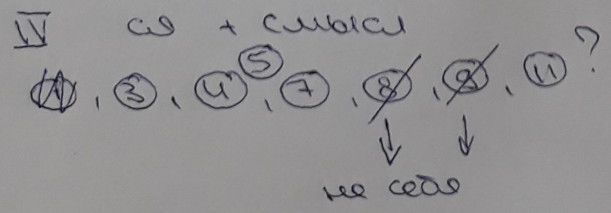 IV ся + смысл
1, 3, 4, 5, 7, 8, 9, 11 ?
не себя